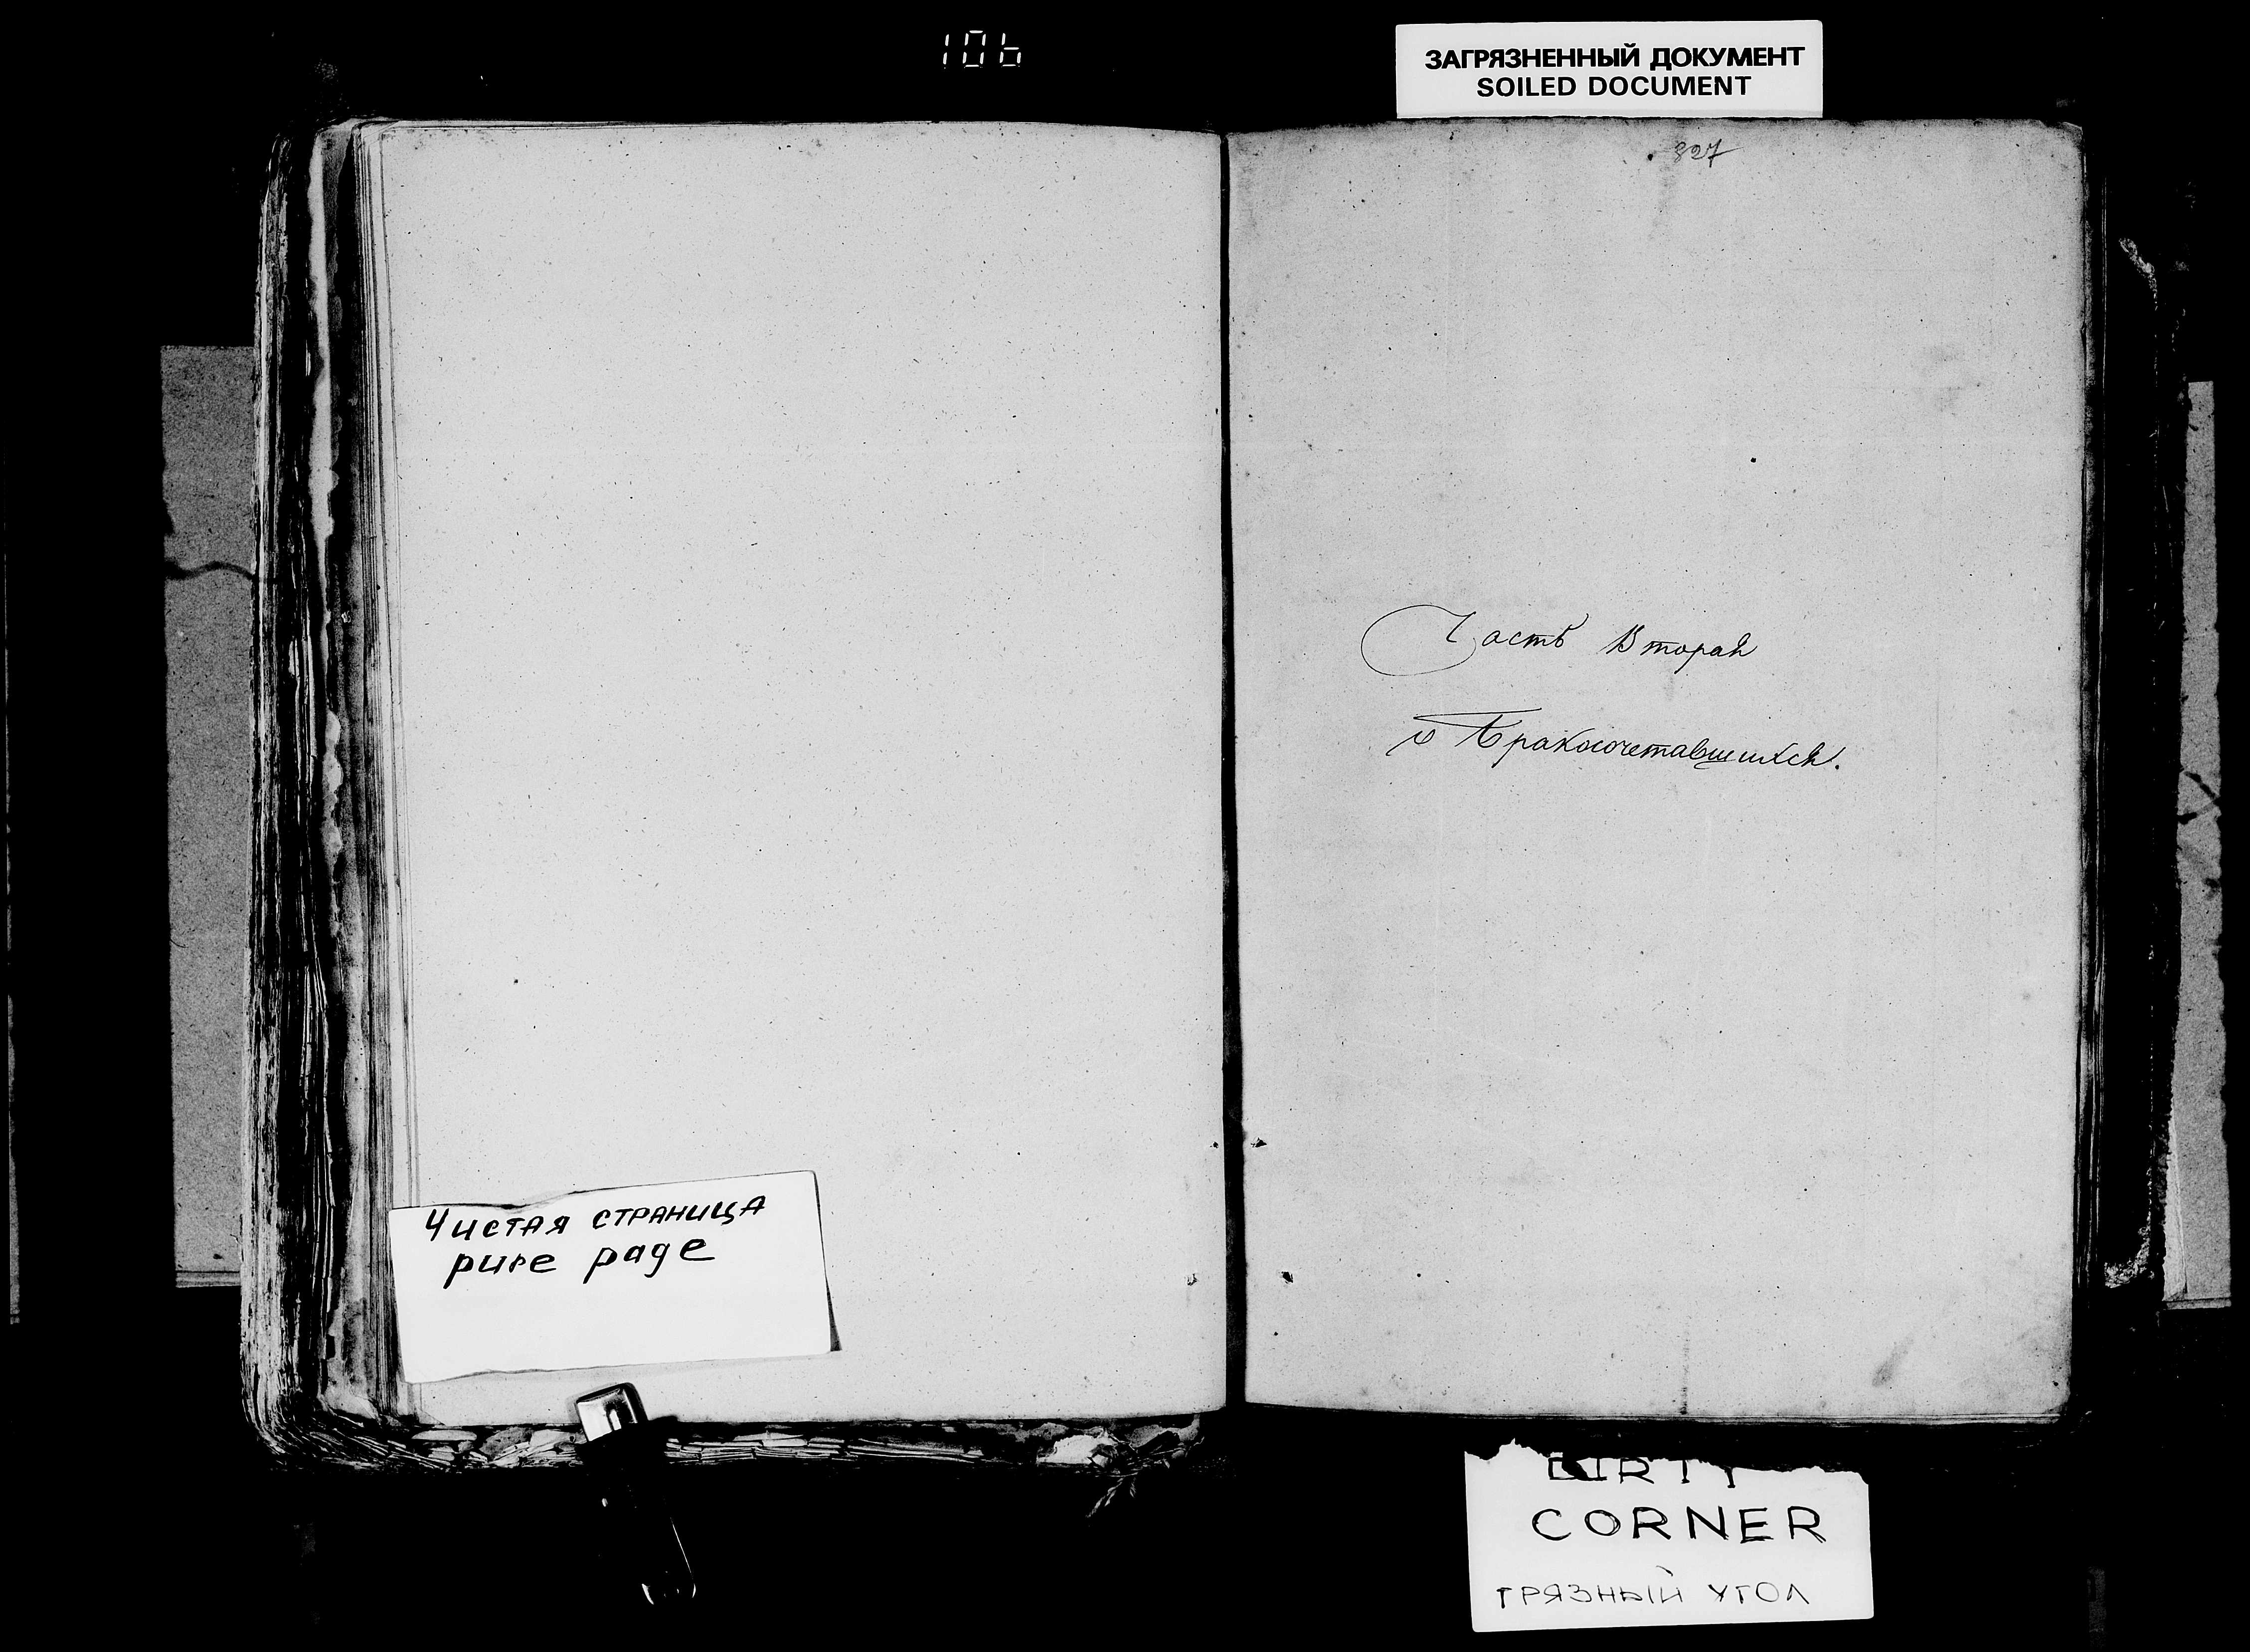 106
ЗАГРЯЗНЕННЫЙ ДОКУМЕНТ
SOILED DOCUMENT
827
Часть Вторая
о Бракосочетавшихся.
Чистая страница
pure page
DIRTY
CORNER
грязный угол